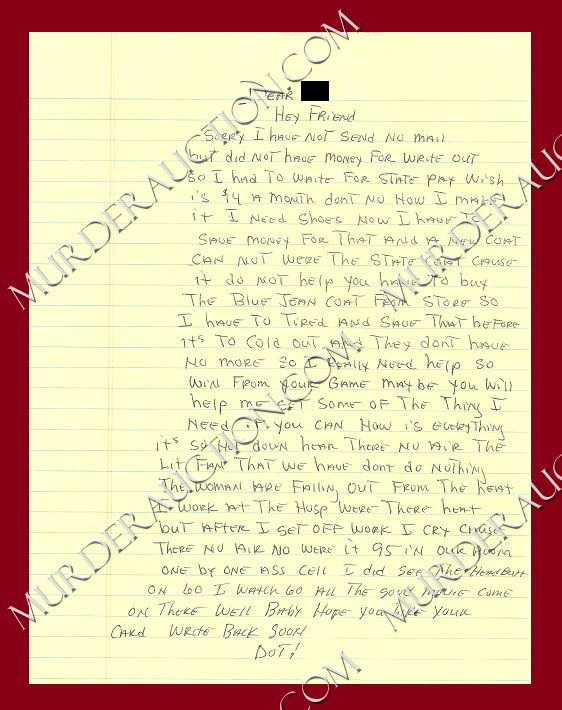 Dear
Hey Friend
Sorry I have not send no mail
but did not have money for write out
so I had to waite for state pay wish
is $4 a month dont no how I make
it I need shoes now I have to
save money for that and a new coat
can not were the state coat cause
it do not help you have to buy
the blue jean coat from store so
I have to tired and save that before
its to cold out and they dont have
no more so I really need help so
win from your game maybe you will
help me get some of the thing I
need if you can how is everything
its so hot down hear there no air the
lit fan that we have dont do nothing
the woman are falling out from the heat
I work at the hosp were there heat
but after I get off work I cry cause
there no air no were it 95 in our room
one by one ass cell I did see the
on 60 I watch 60 all the good movie come
on there well baby hope you like your
card write back soon
Dot!
MURDERAUCTION.COM
MURDERAUCTION.COM
MURDERAUCTION.COM
MURDERAUCTION.COM